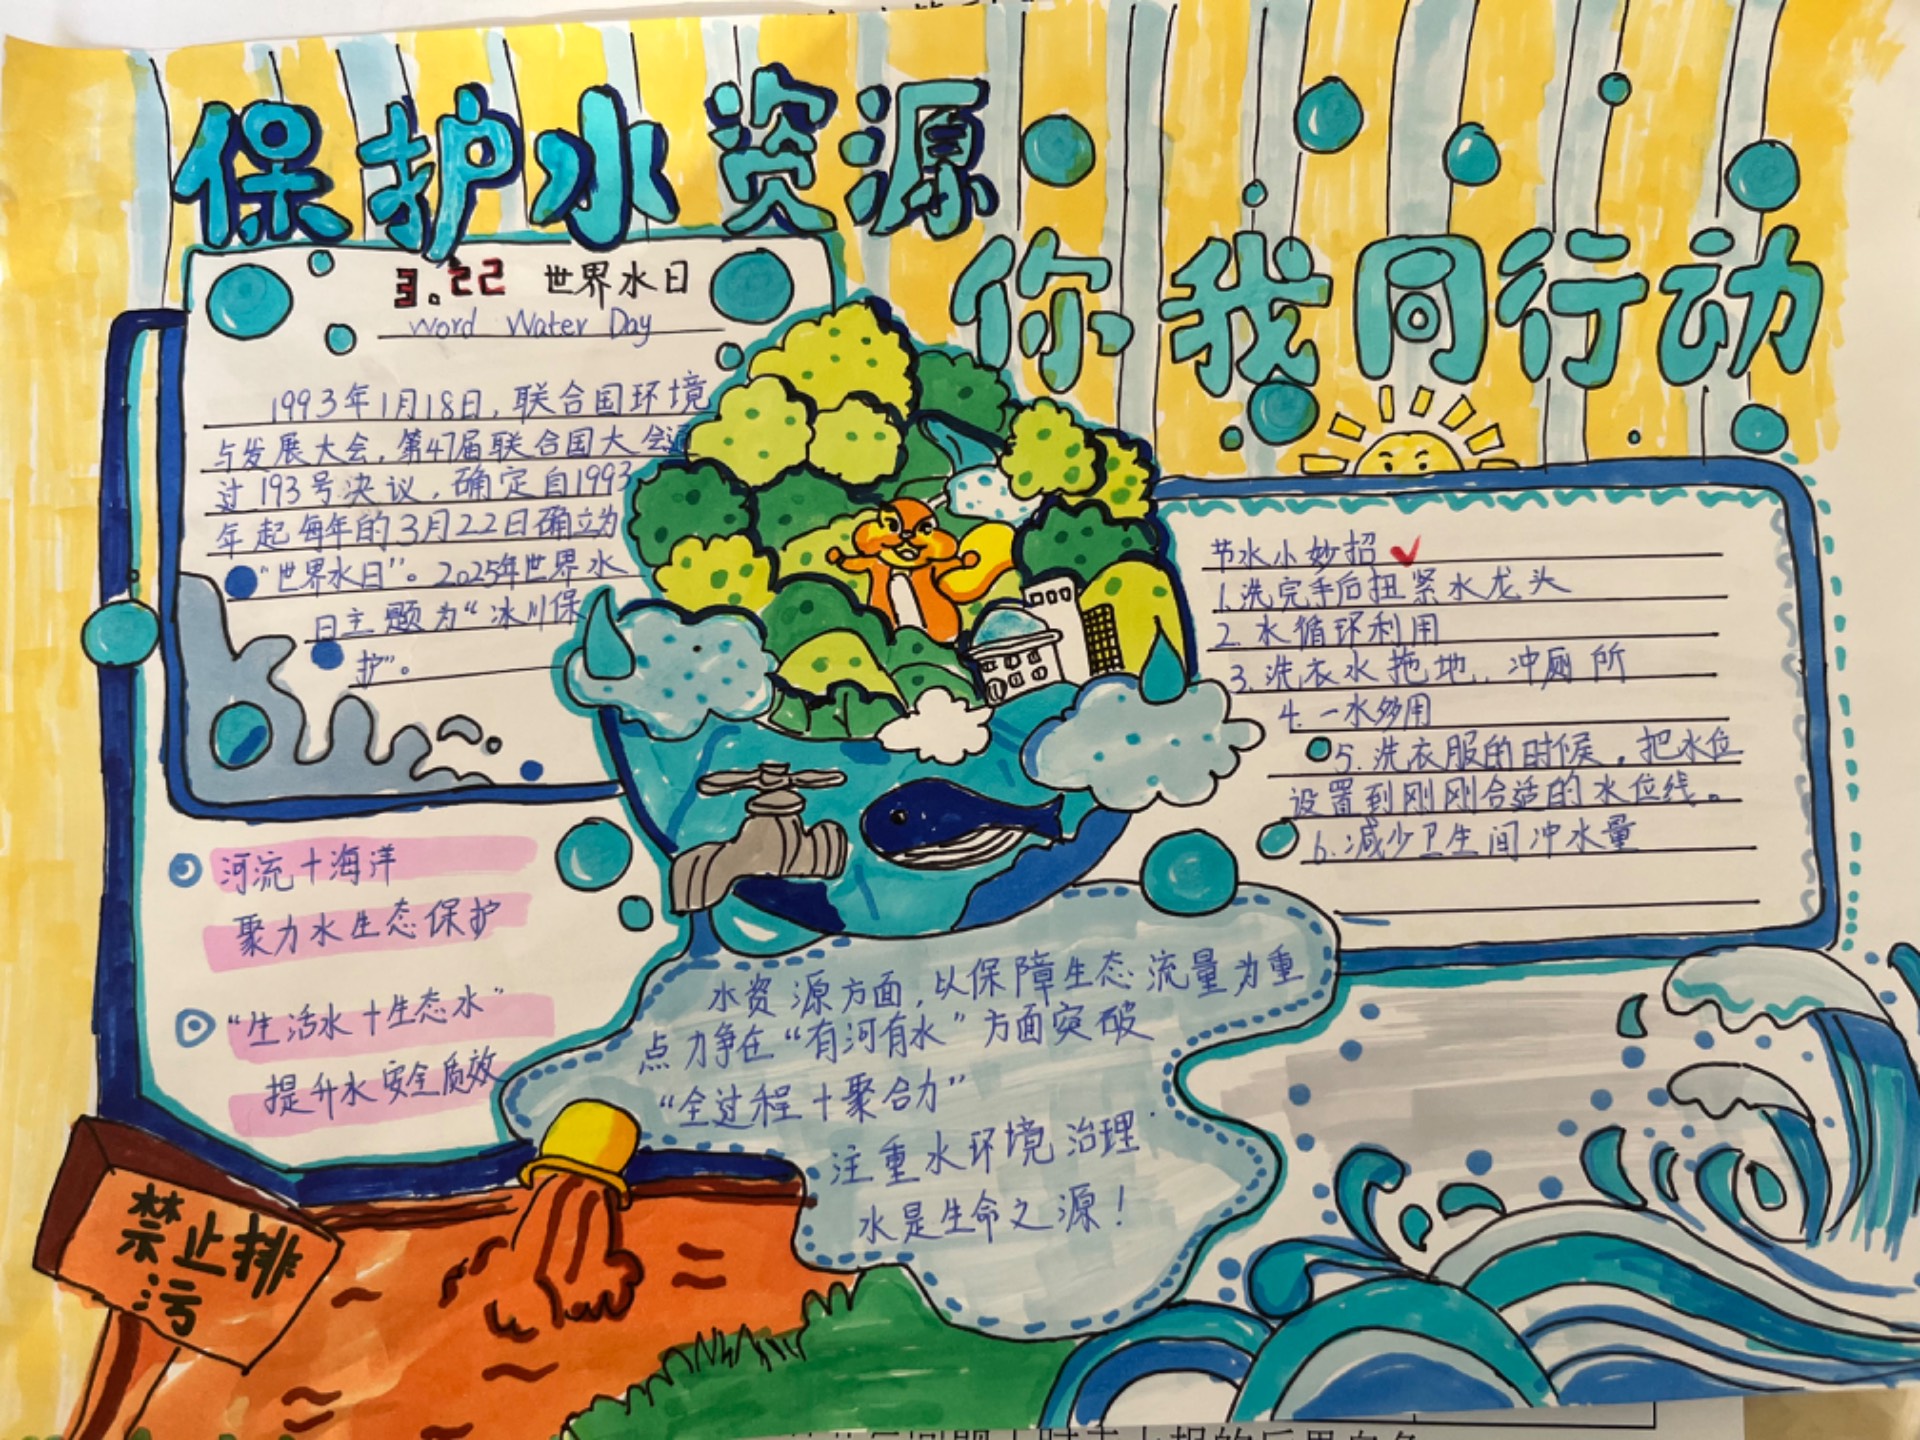 保护水资源
你我同行动
3.22 世界水日
Word Water Day
1993年1月18日，联合国环境
与发展大会，第47届联合国大会通
过193号决议，确定自1993
年起每年的3月22日确立为
“世界水日”。2025年世界水
日主题为“冰川保
护”。
节水小妙招
1.洗完手后扭紧水龙头
2.水循环利用
3.洗衣水拖地，冲厕所
4.一水多用
5.洗衣服的时候，把水位
设置到刚刚合适的水位线。
6.减少卫生间冲水量
河流+海洋
聚力水生态保护
“生活水+生态水”
提升水安全质效
水资源方面，以保障生态流量为重
点力争在“有河有水”方面突破
“全过程+聚合力”
注重水环境治理
水是生命之源！
禁止排
污